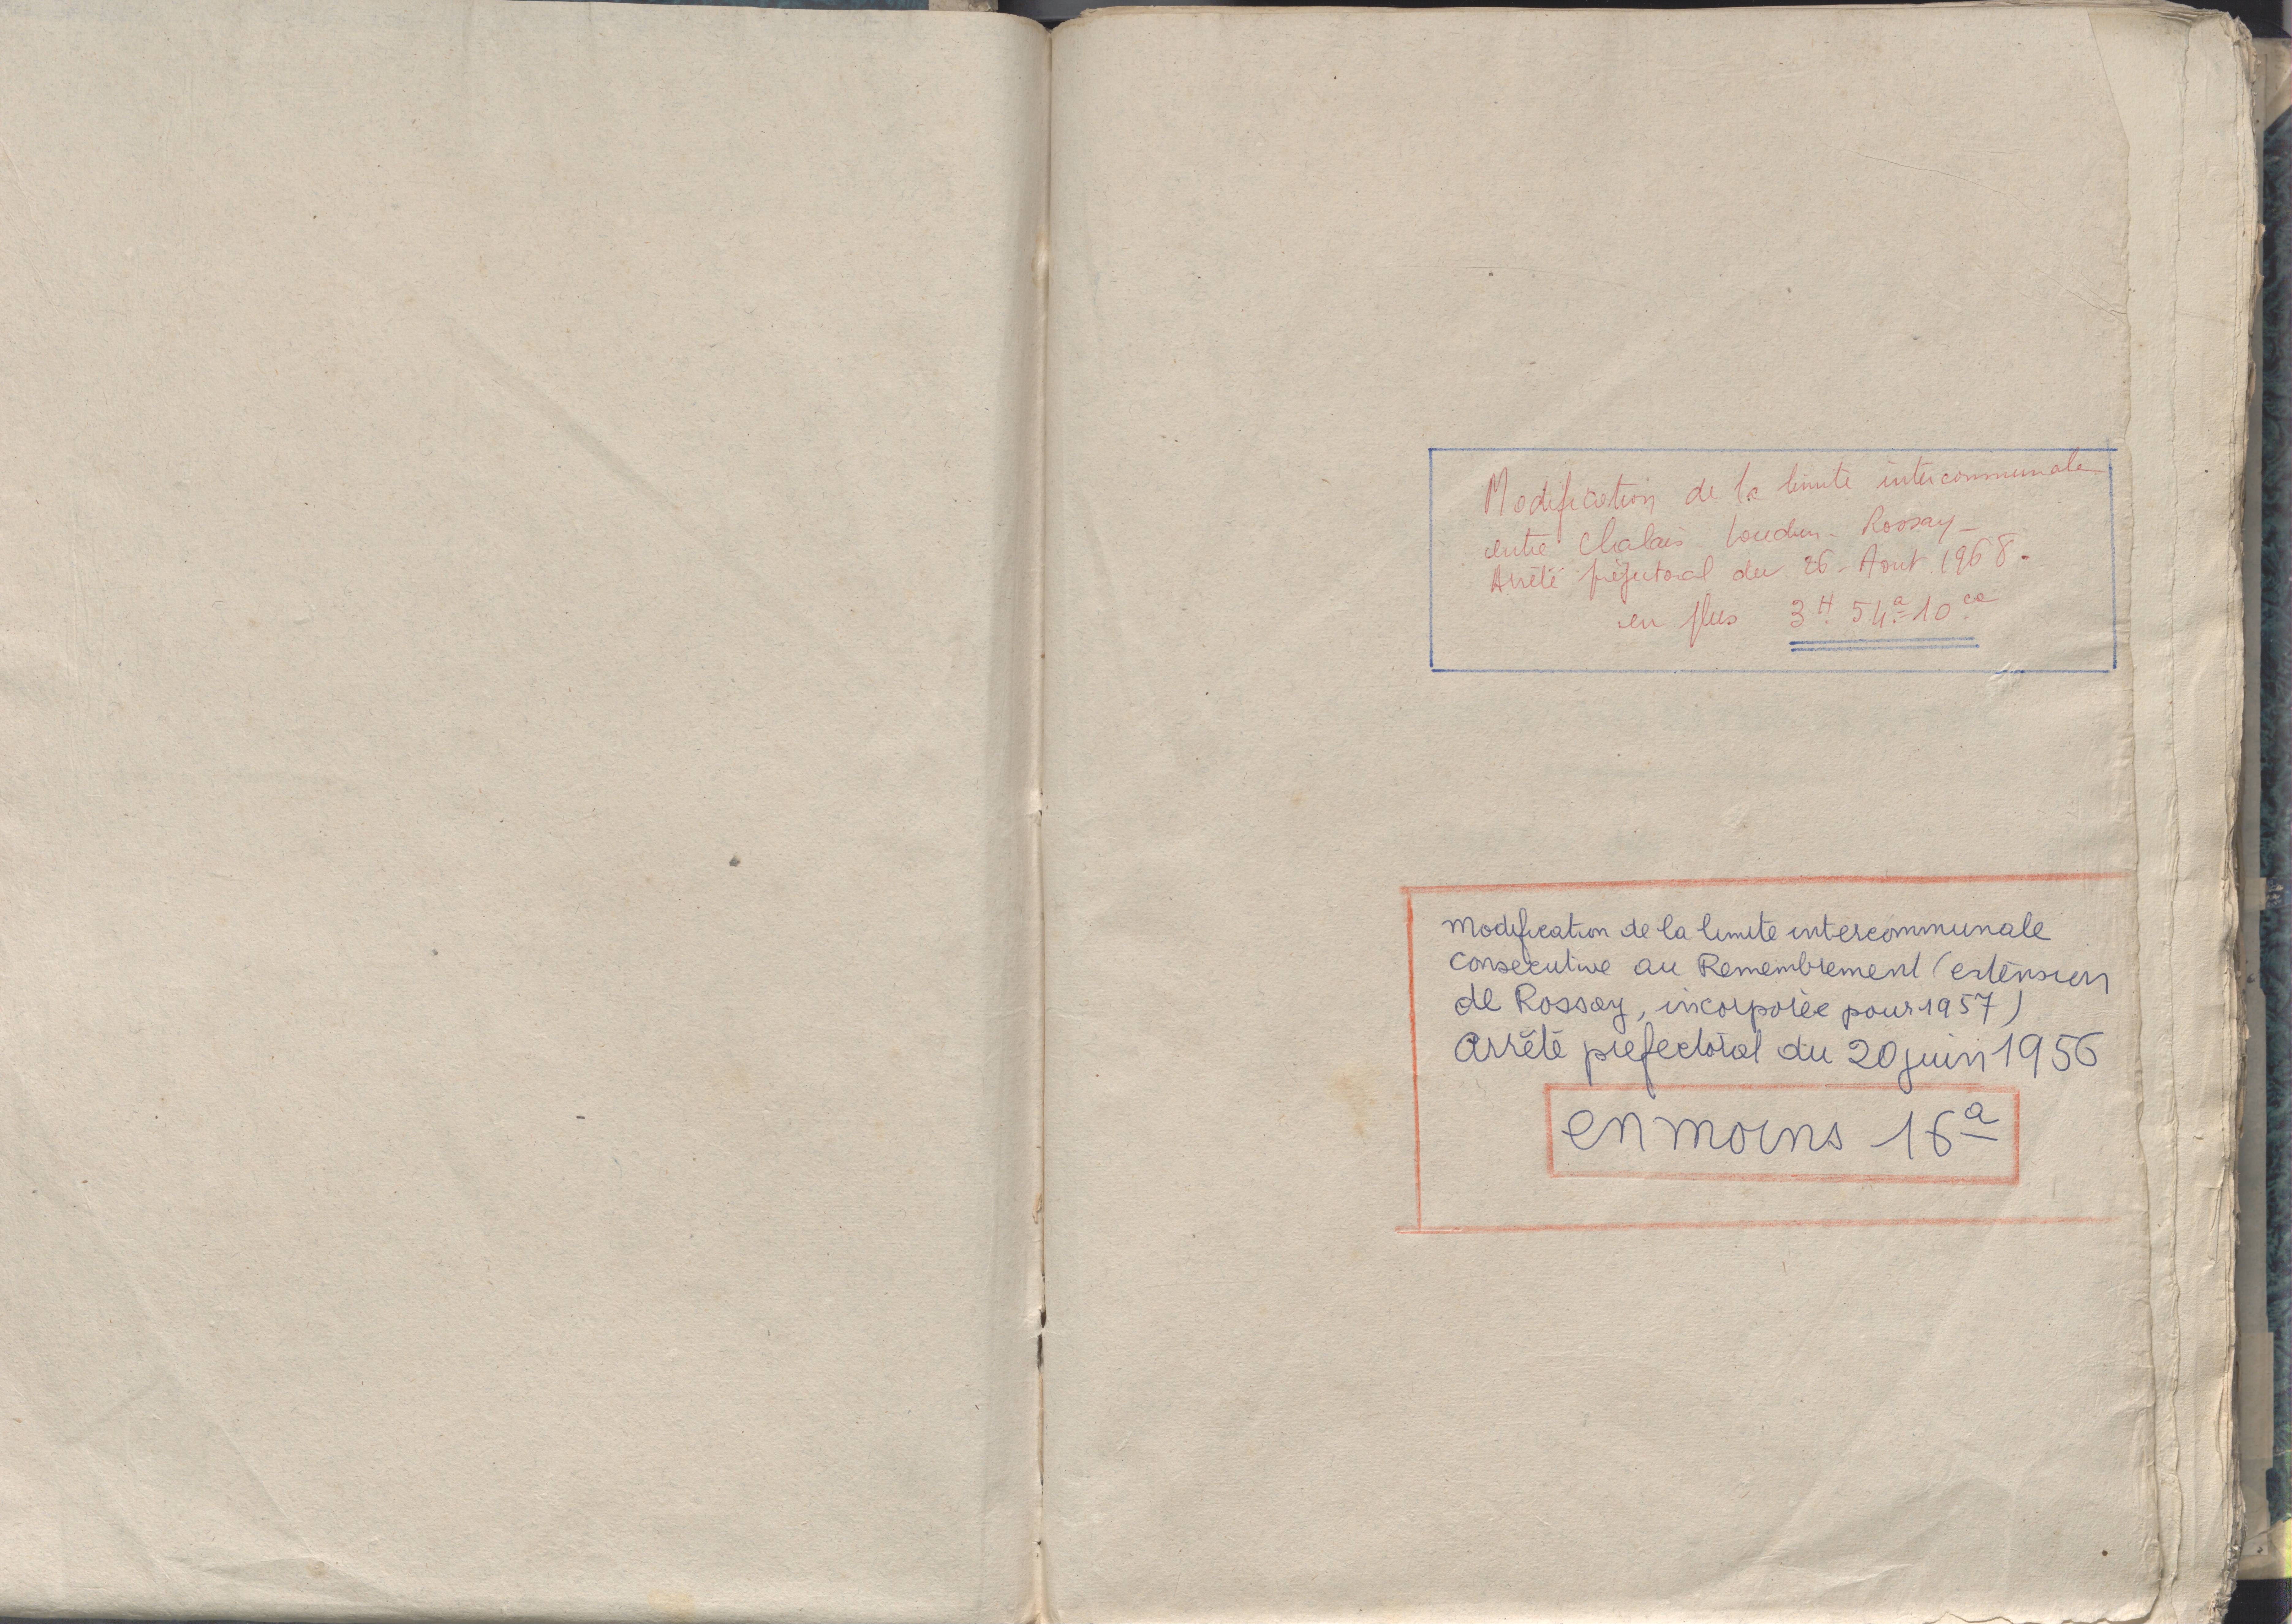 Modification de la limite intercommunale
entre Chalais Loudun - Rossay -
Arrêté préfectoral du 26 - Aout 1968.
en plus 3H 54a 10ca
Modification de la limite intercommunale
consecutive au Remembrement (extension
de Rossay, incorporée pour 1957)
Arrêté prefectoral du 20 juin 1956
en moins 16a